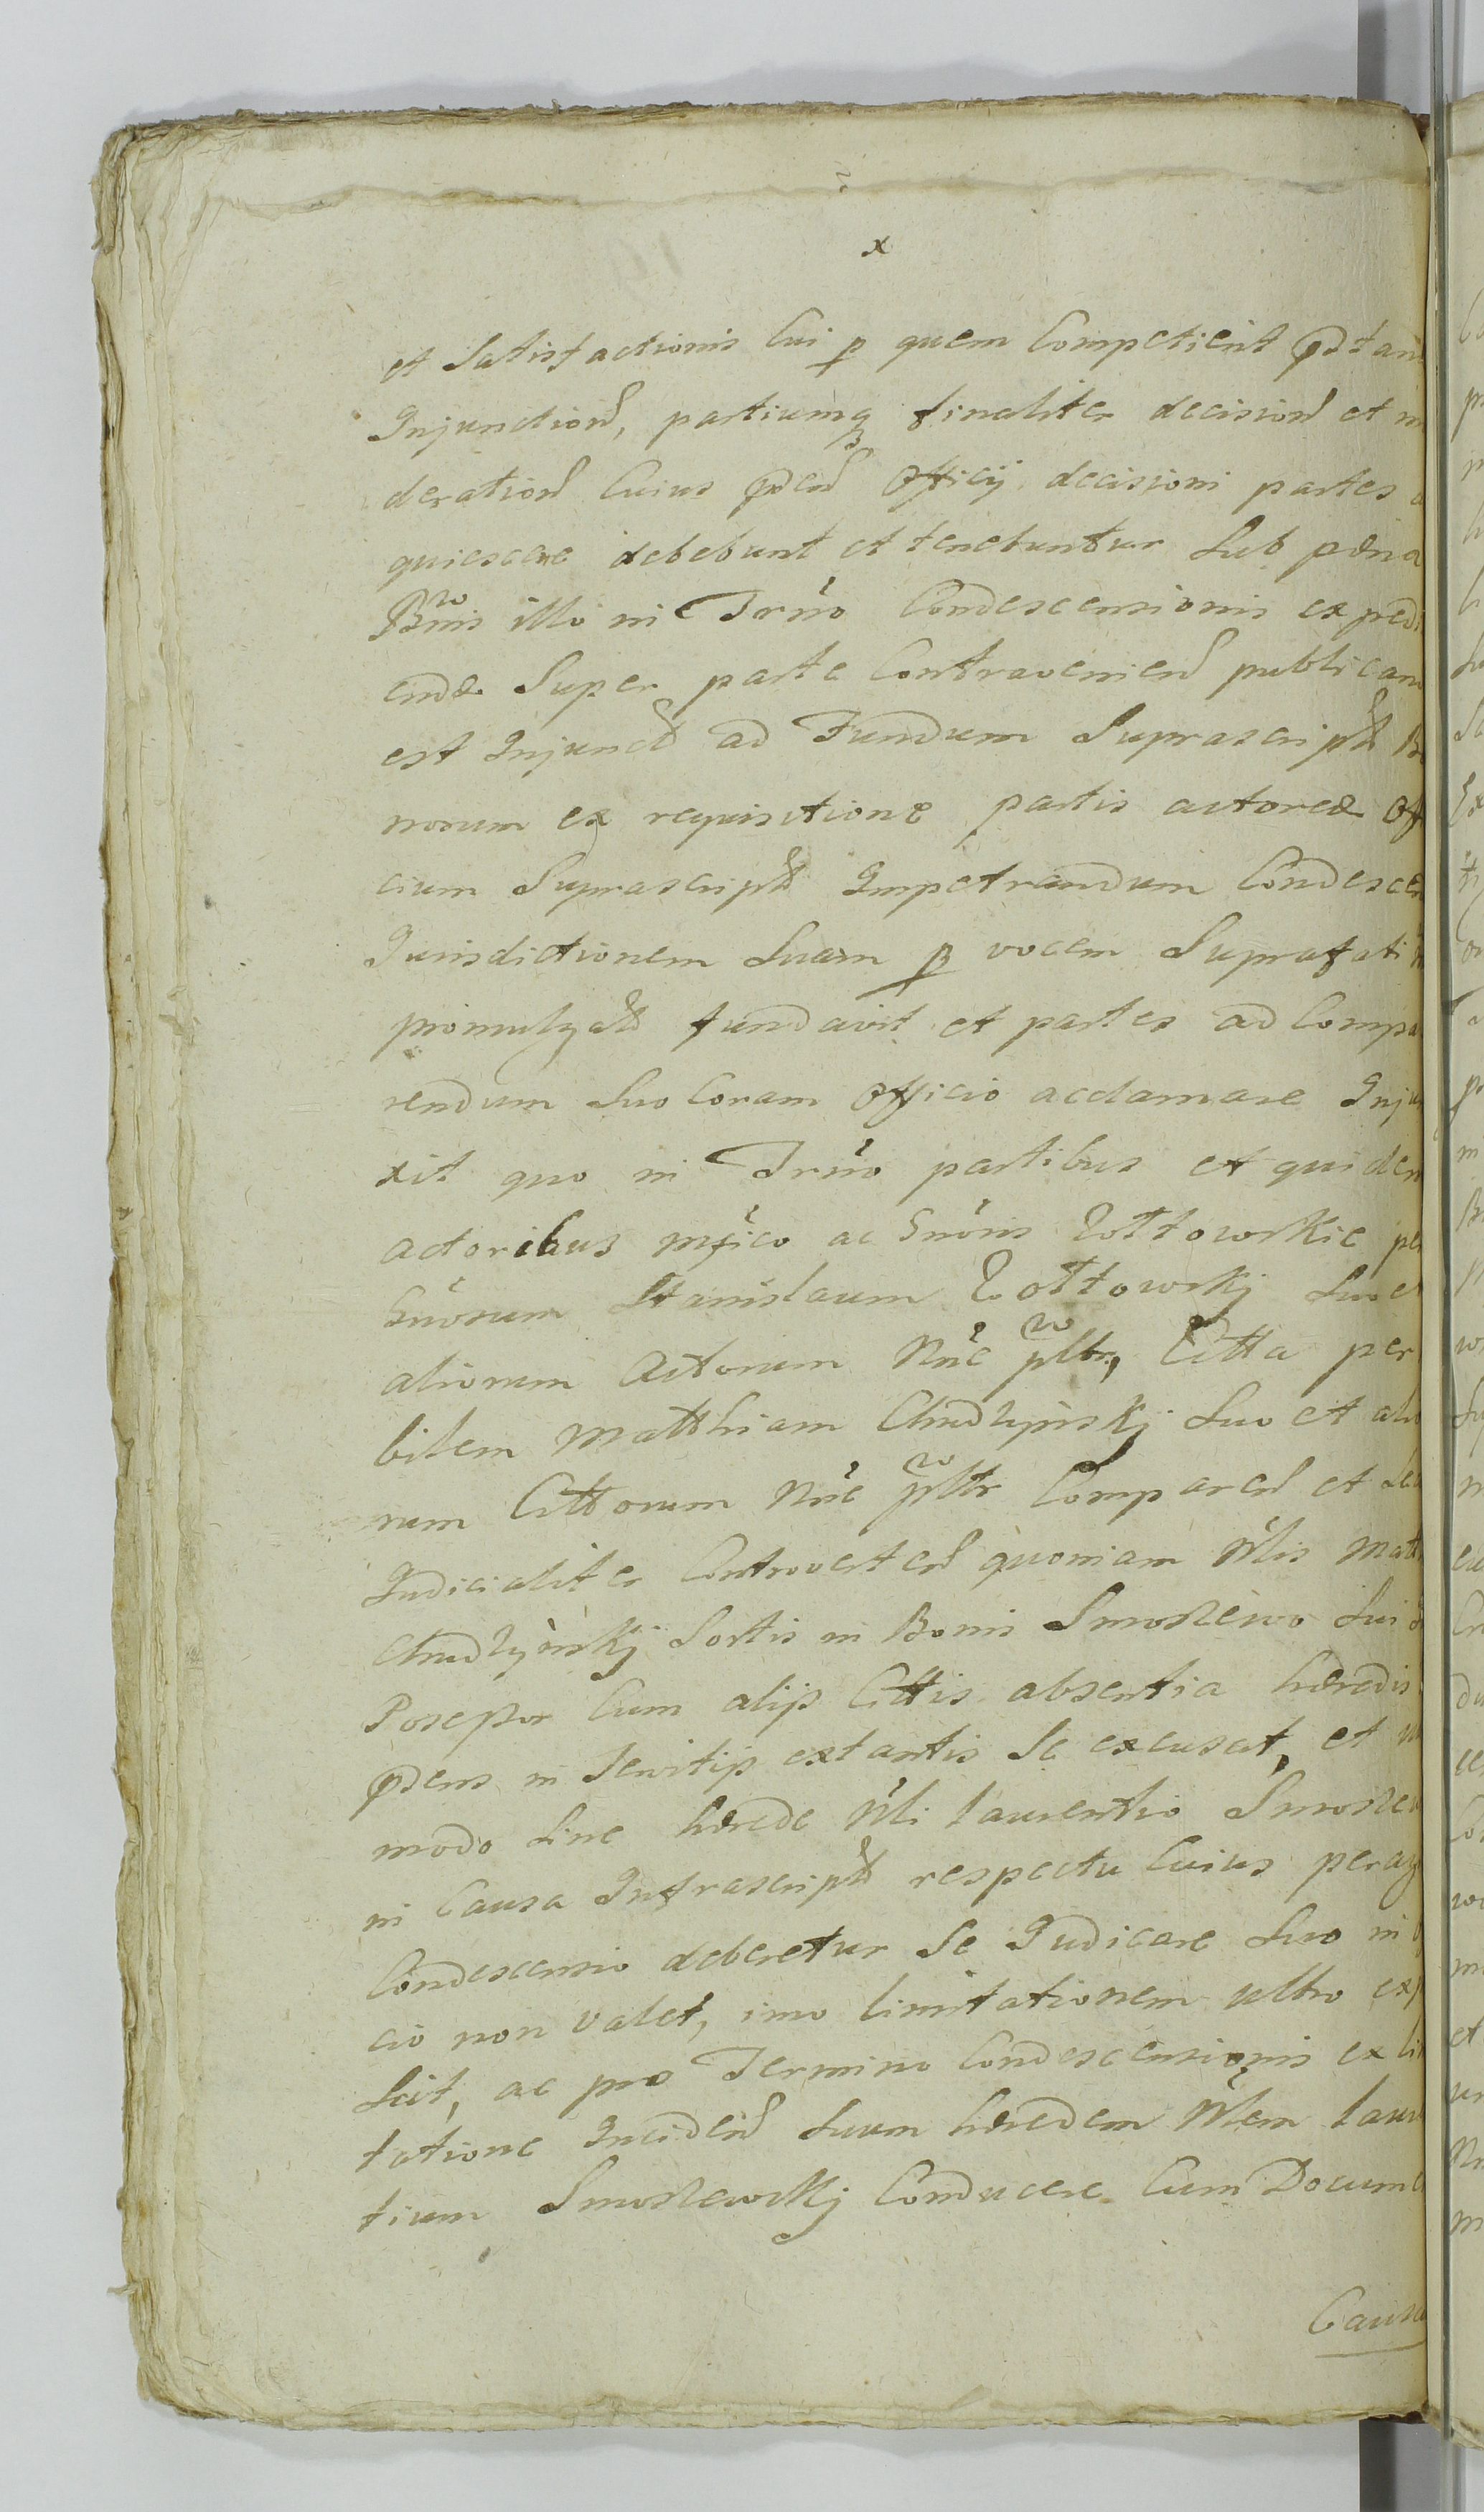 x
et Satisfactionis Cui p quem Competierit
Injunction, partiumq finaliter decision et
deration Cuius Officij decisioni partes
quiescere debebunt et tenebuntur Sub pœna
Bnis illo in Trno Condescensionis exped
endæ Super parte Contravenien publican
est Injunct ad Fundum Suprascript
norum ex requisitione partis actoreæ Off
cium Suprascript Impetrandum Condescen
Jurisdictionem Suam p vocem Suprafati
promulgat fundavit et partes ad Compa
rendum Suo Coram Officio acclamare Inju
xit quo in Trno partibus et quidem
actoribus Mfico ac Gnoris Zołtowskie per
Gnorum Stanislaum Zołtowskj Suo et
aliorum Actorum Nne pltr, Citta per
bilem Matthiam Chudzynskj Suo et alio
rum Cittorum Nne pltr Comparen et
Judicialiter Controverten quoniam Nlis Matt
Chudzynskj Sortis in Bonis Smoszewo Sui
Posessor Cum alijs Cittis absentia hæredis
in Servitijs extantis Se excusat, et
modo Sine hærede Nli Laurentio Smoszew
in Causa Infrascript respectu Cuius perag
Condescensio deberetur Se Judicare Suo in
cio non valet, imo limitationem ultro ex
scit, ac pro Termino Condescensionis ex li
tatione Inciden Suum hæredem Nlem Laur
tium Smoszewskj Conducere Cum Docum
Causa